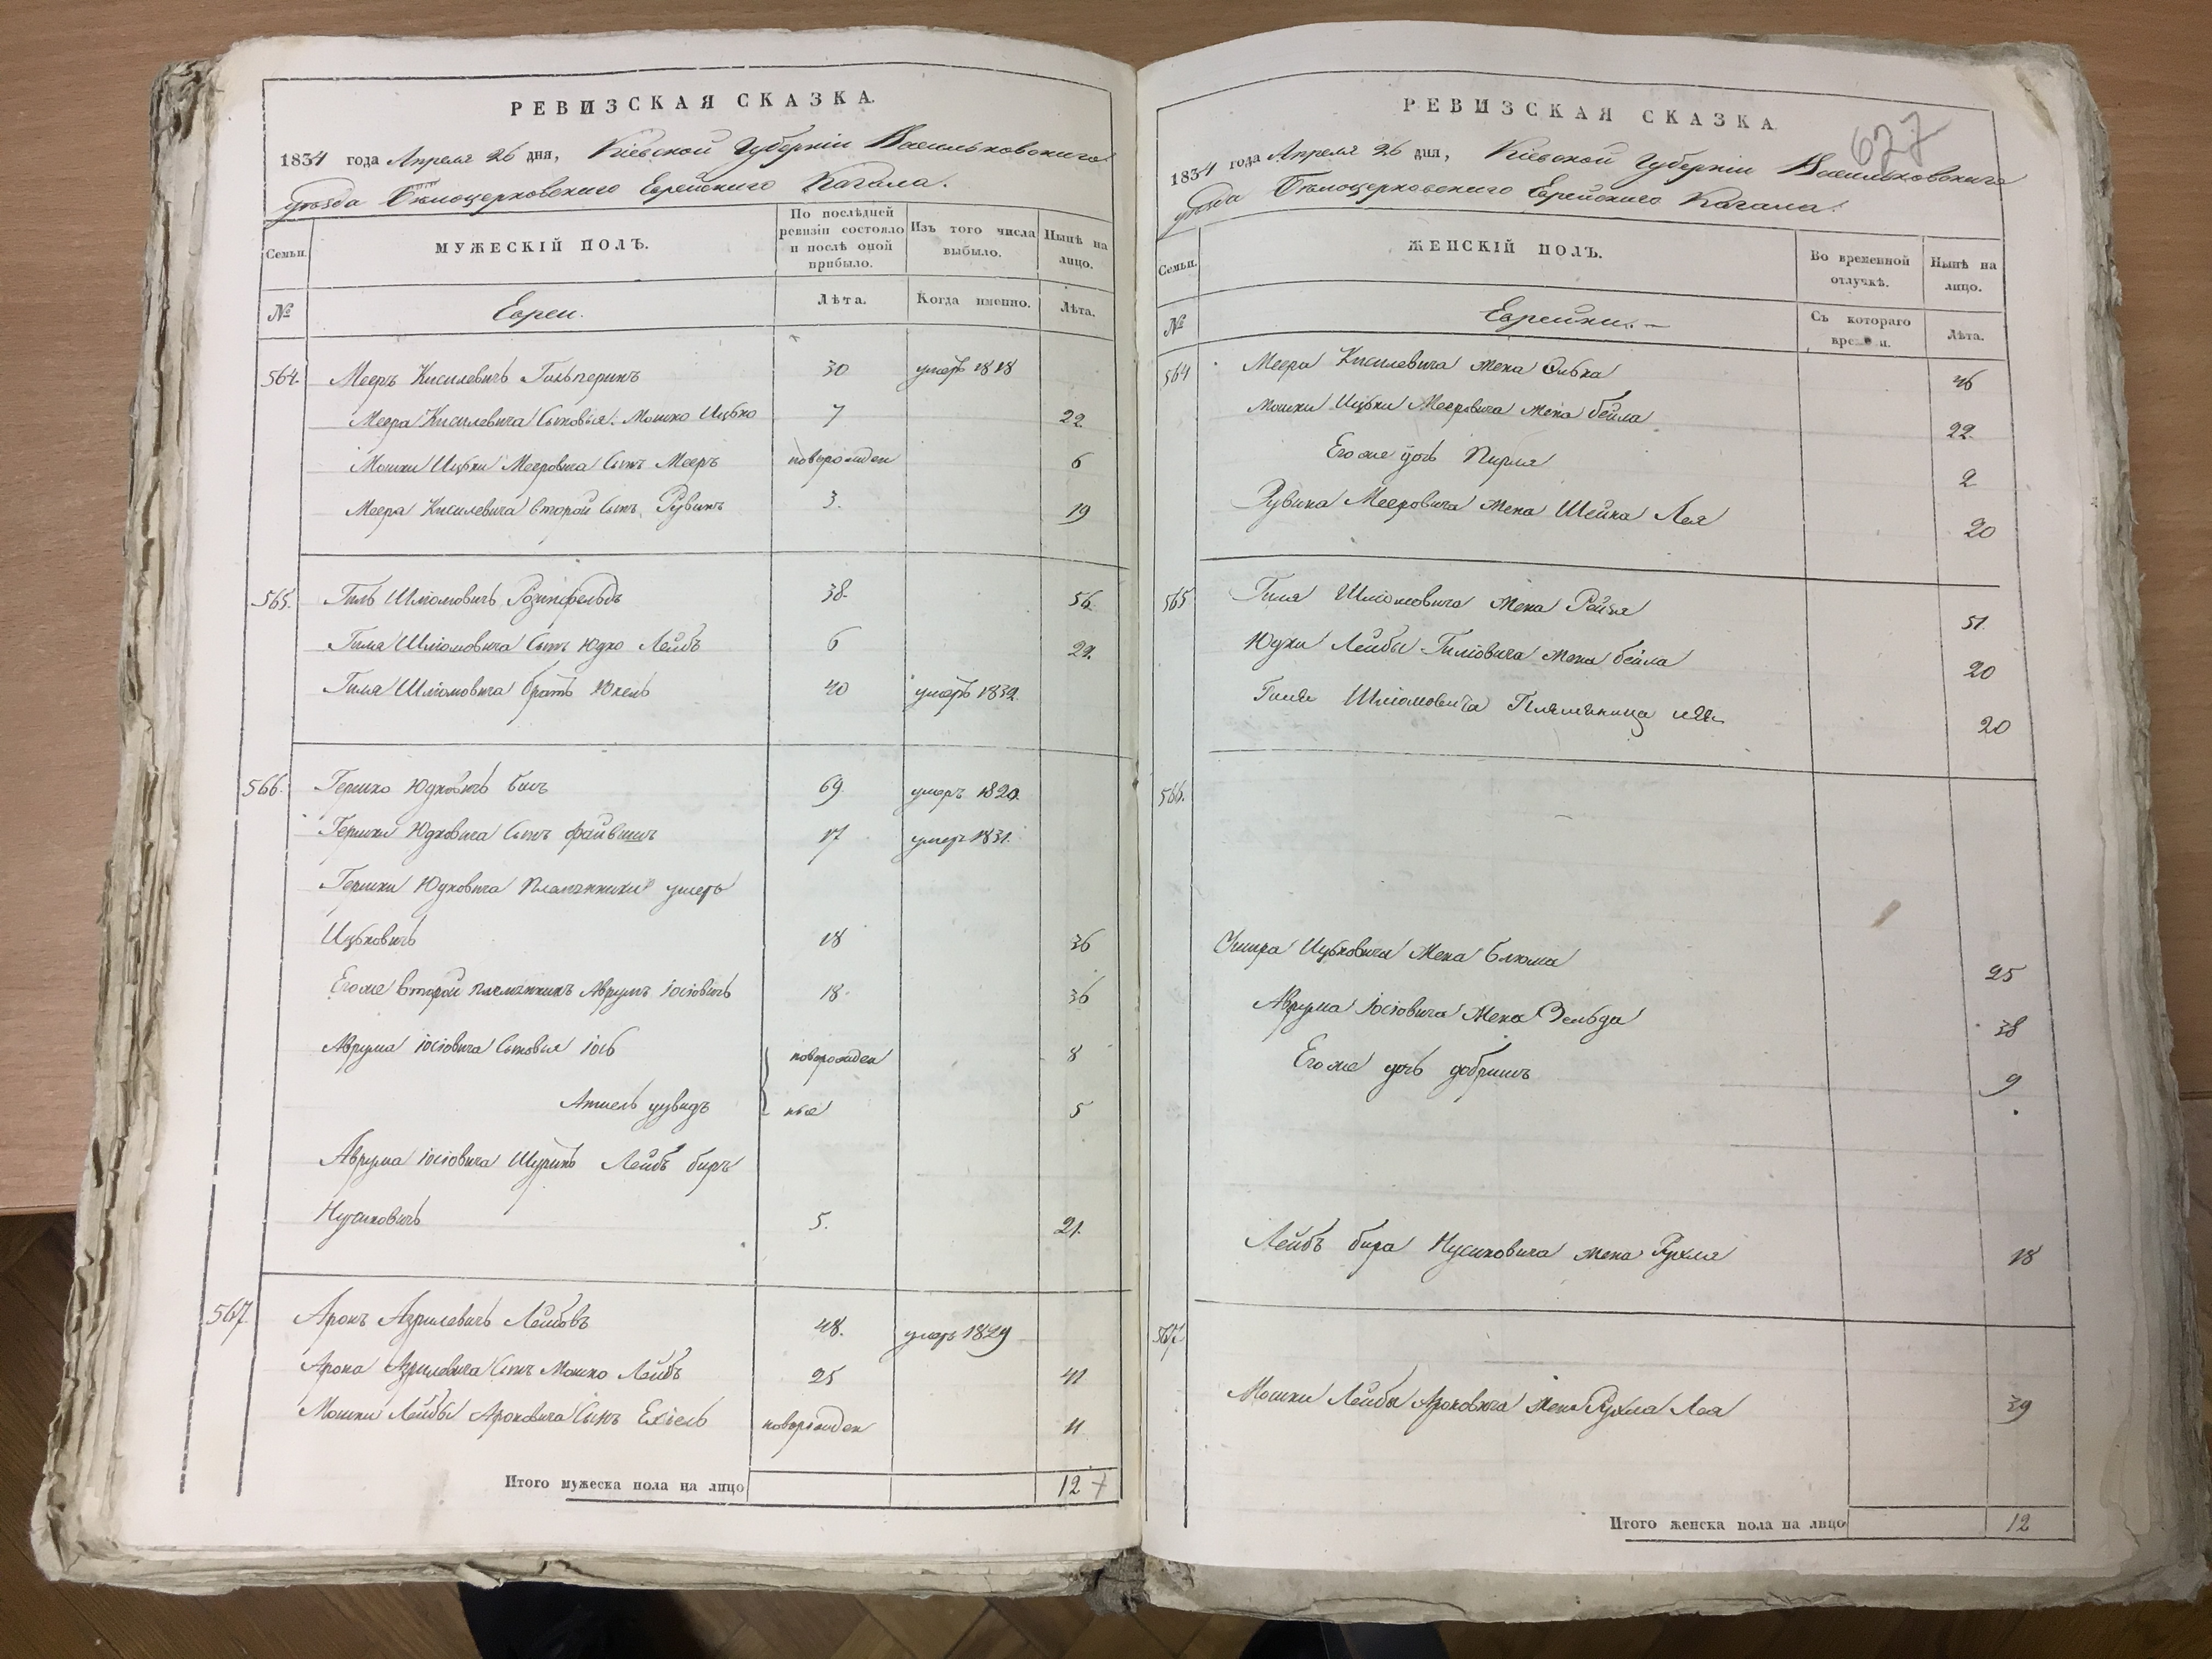 РЕВИЗСКАЯ СКАЗКА.
1834 года Апреля 26 дня, Кіевской Губерніи Васильковскаго
уѣзда Бѣлоцерковскаго Еврейскаго Кагала.
Семьи.
МУЖЕСКІЙ ПОЛЪ.
По послѣдней ревизіи состояло и послѣ оной прибыло.
Изъ того числа выбыло.
Нынѣ на лицо.
№
Евреи.
Лѣта.
Когда именно.
Лѣта.
564. Мееръ Кисилевичъ Гальперинъ 30 умеръ 1818
Меера Кисилевича Сыновья: Мошко Ицько 7 22
Мошки Ицьки Мееровича Сынъ Мееръ новорожден 6
Меера Кисилевича второй Сынъ Рувинъ 3. 19
565. Гиль Шліомовичъ Розинфельдъ 38. 56
Гиля Шліомовича Сынъ Юдко Лейбъ 6 22.
Гиля Шліомовича братъ Юкель 40 умеръ 1832.
566. Гершко Юдковичъ 69 умеръ 1820.
Гершки Юдковича Сынъ Файвишъ 17 умеръ 1831.
Гершки Юдковича Племянники
Ицьковичъ 18 36
Его же второй племянникъ Аврумъ Іосіовичъ 18. 36
Аврума Іосіовича Сыновья Іось новорожден 8
Аншель Дувидъ ные 5
Аврума Іосіовича Шуринъ Лейбъ беръ
Нусиновичъ 5. 21.
567. Аронъ Азрилевичъ Лейбовъ 48. умеръ 1829
Арона Азрилевича Сынъ Мошко Лейбъ 25 41
Мошки Лейбы Ароновича Сынъ Ехіель новорожден 11
Итого мужеска пола на лицо 12 +
РЕВИЗСКАЯ СКАЗКА
627
1834 года Апреля 26 дня, Кіевской Губерніи Васильковскаго
уѣзда Бѣлоцерковскаго Еврейскаго Кагала.
Семьи.
ЖЕНСКІЙ ПОЛЪ.
Во временной отлучкѣ.
Нынѣ на лицо.
№
Еврейки.
Съ котораго времени.
Лѣта.
564 Меера Кисилевича жена Элька 46
Мошки Ицьки Мееровича жена бейла 22.
Его же дочь Пирля 2
Рувина Мееровича жена Шейна Лея 20
565 Гиля Шліомовича жена Рейзя 51.
Юдки Лейбы Гиліовича жена бейла 20
Гиля Шліомовича Племяница 20
566.
Ицьковича жена блюма 25
Аврума Іосіовича жена Зельда 38
Его же дочь добришъ 9
Лейбъ бера Нусиновича жена Рухля 18
567.
Мошки Лейбы Ароновича жена Рухля Лея 39
Итого женска пола на лицо 12